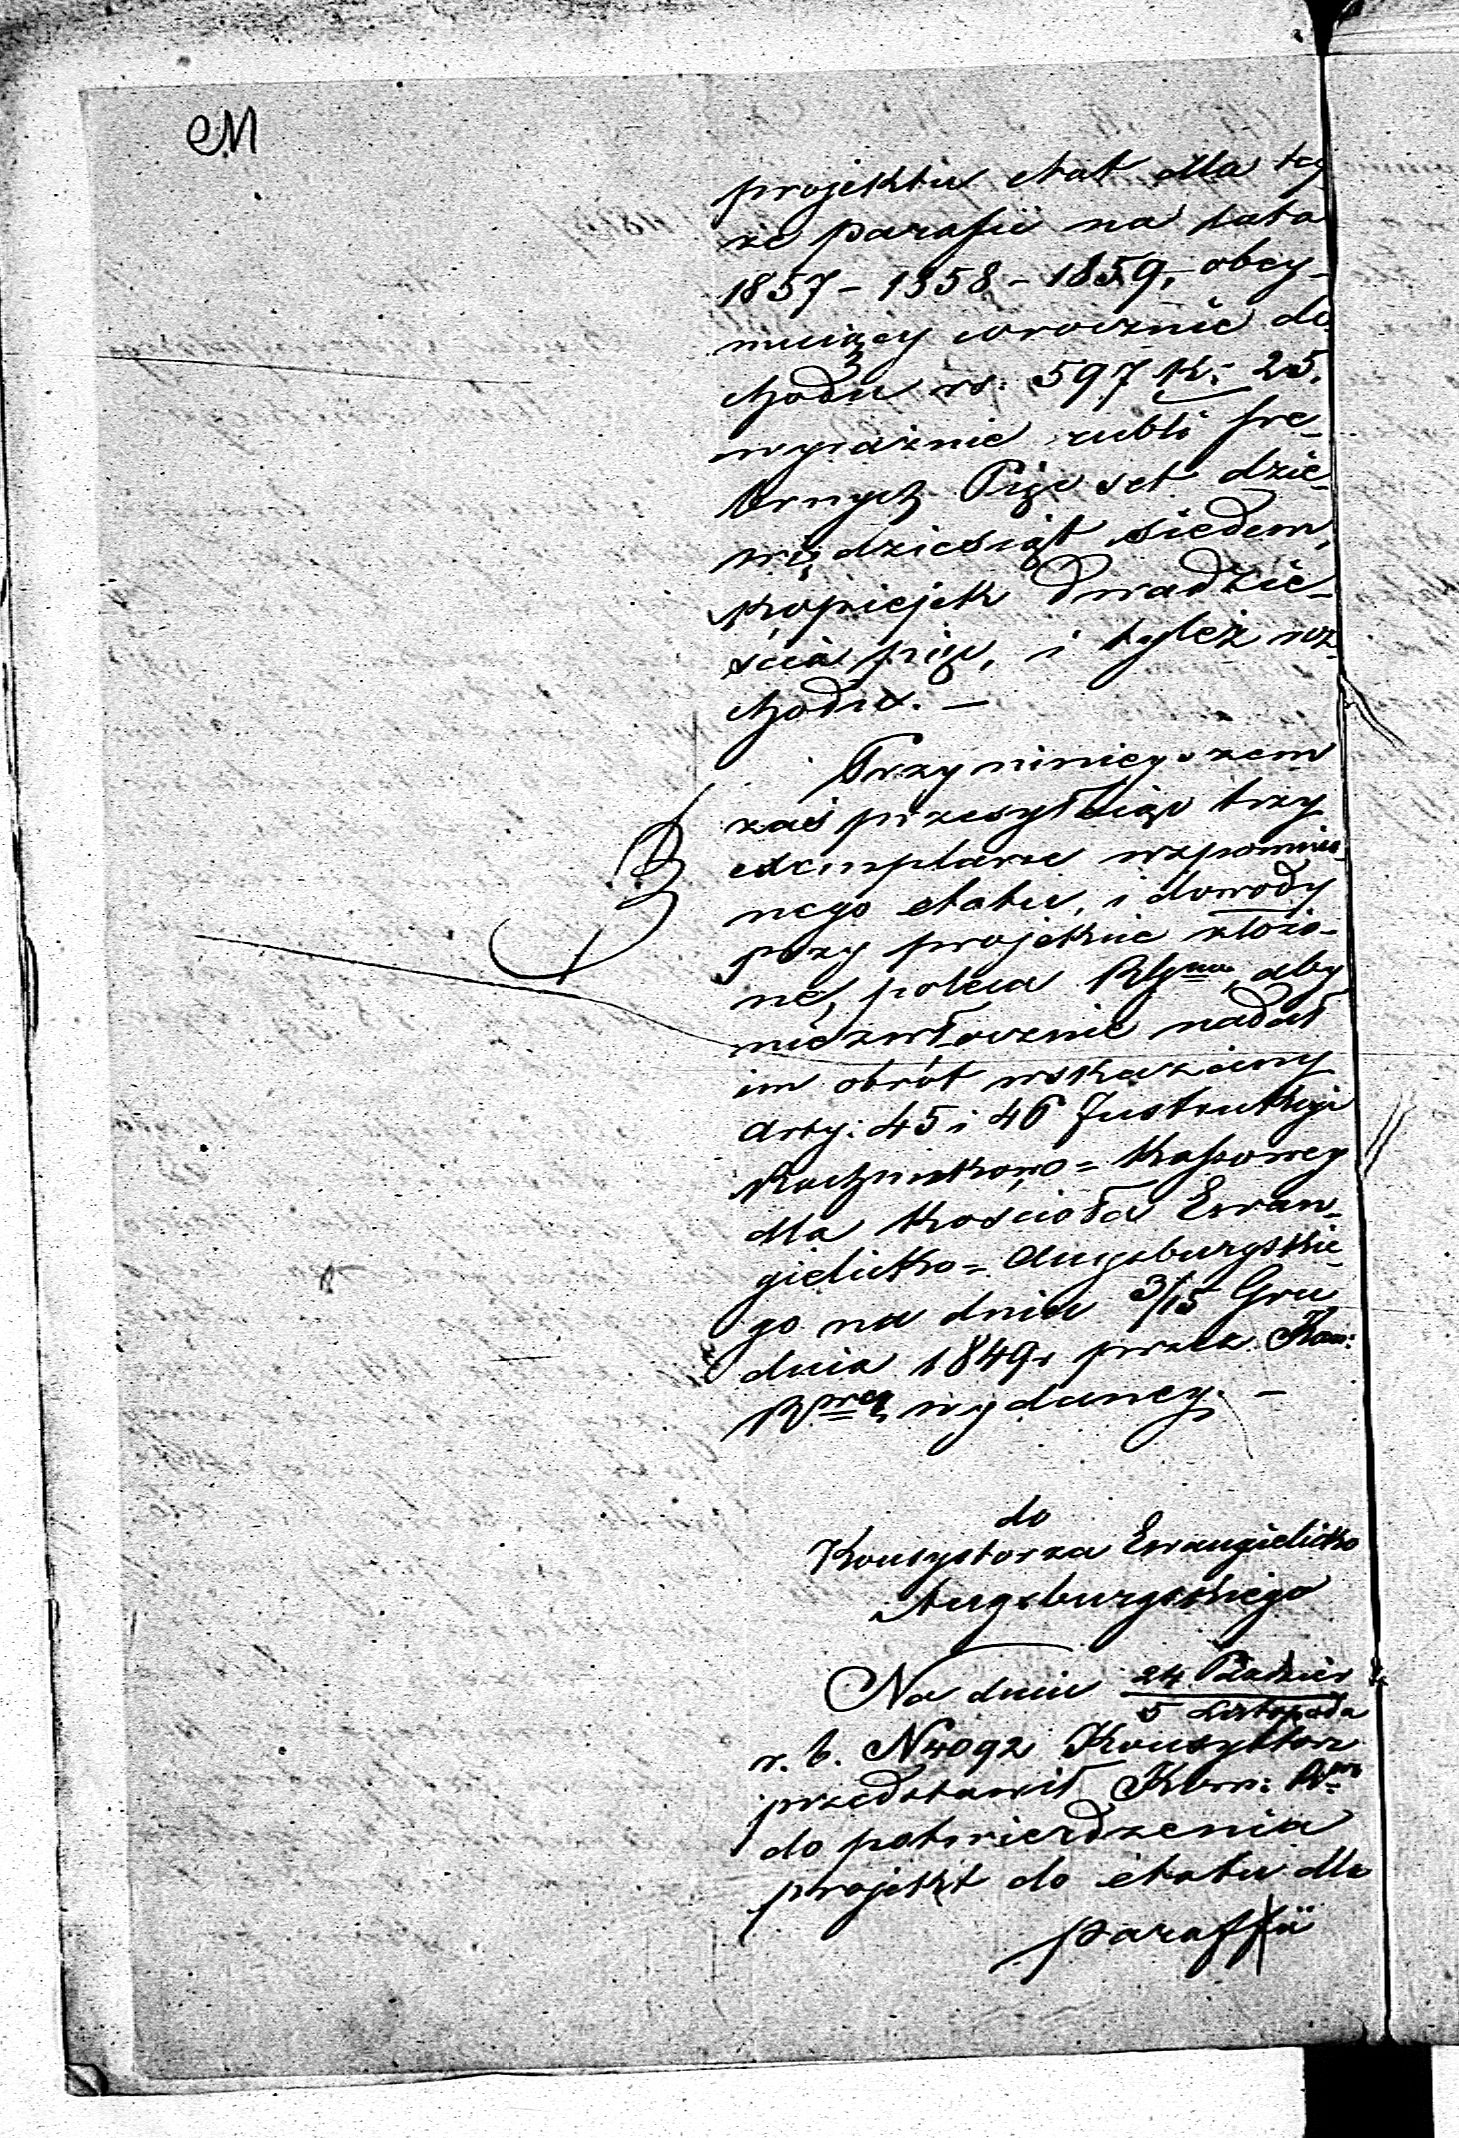 M
projektu etat dla tey
że parafii na lata
1857 – 1858 – 1859, obey-
muiący corocznie do
chodu rs: 597 k: 25.
wyraźnie rubli sre-
brnych Pięc set dzie-
więdziesiąt siedem,
kopiejek dwadzie-
ścia pięc, i tyleż roz-
chodu. –
Przy niniejszem
zaś przesyłaiąc trzy
exemplarze wspomnio-
nego etatu, i dowody
przy projekcie złożo-
ne, poleca aby
niezwłocznie nadał
im obrót wskazany
arty: 45 i 46 Instrukcyi
Rachunkowo = Kassowey
dla Kościoła Ewan-
gielicko = Augsburgskie-
go na dniu 3/15 Gru
dnia 1849 r przez Kom:
R wydaney. –
do
Konsystorza Ewangielicko
Augsburgskiego
Na dniu 24 Paździer
5 Listopada
r. b. N 4092 Konsystorz
przedstawił Kom: R
do potwierdzenia
projekt do etatu dla
parafii